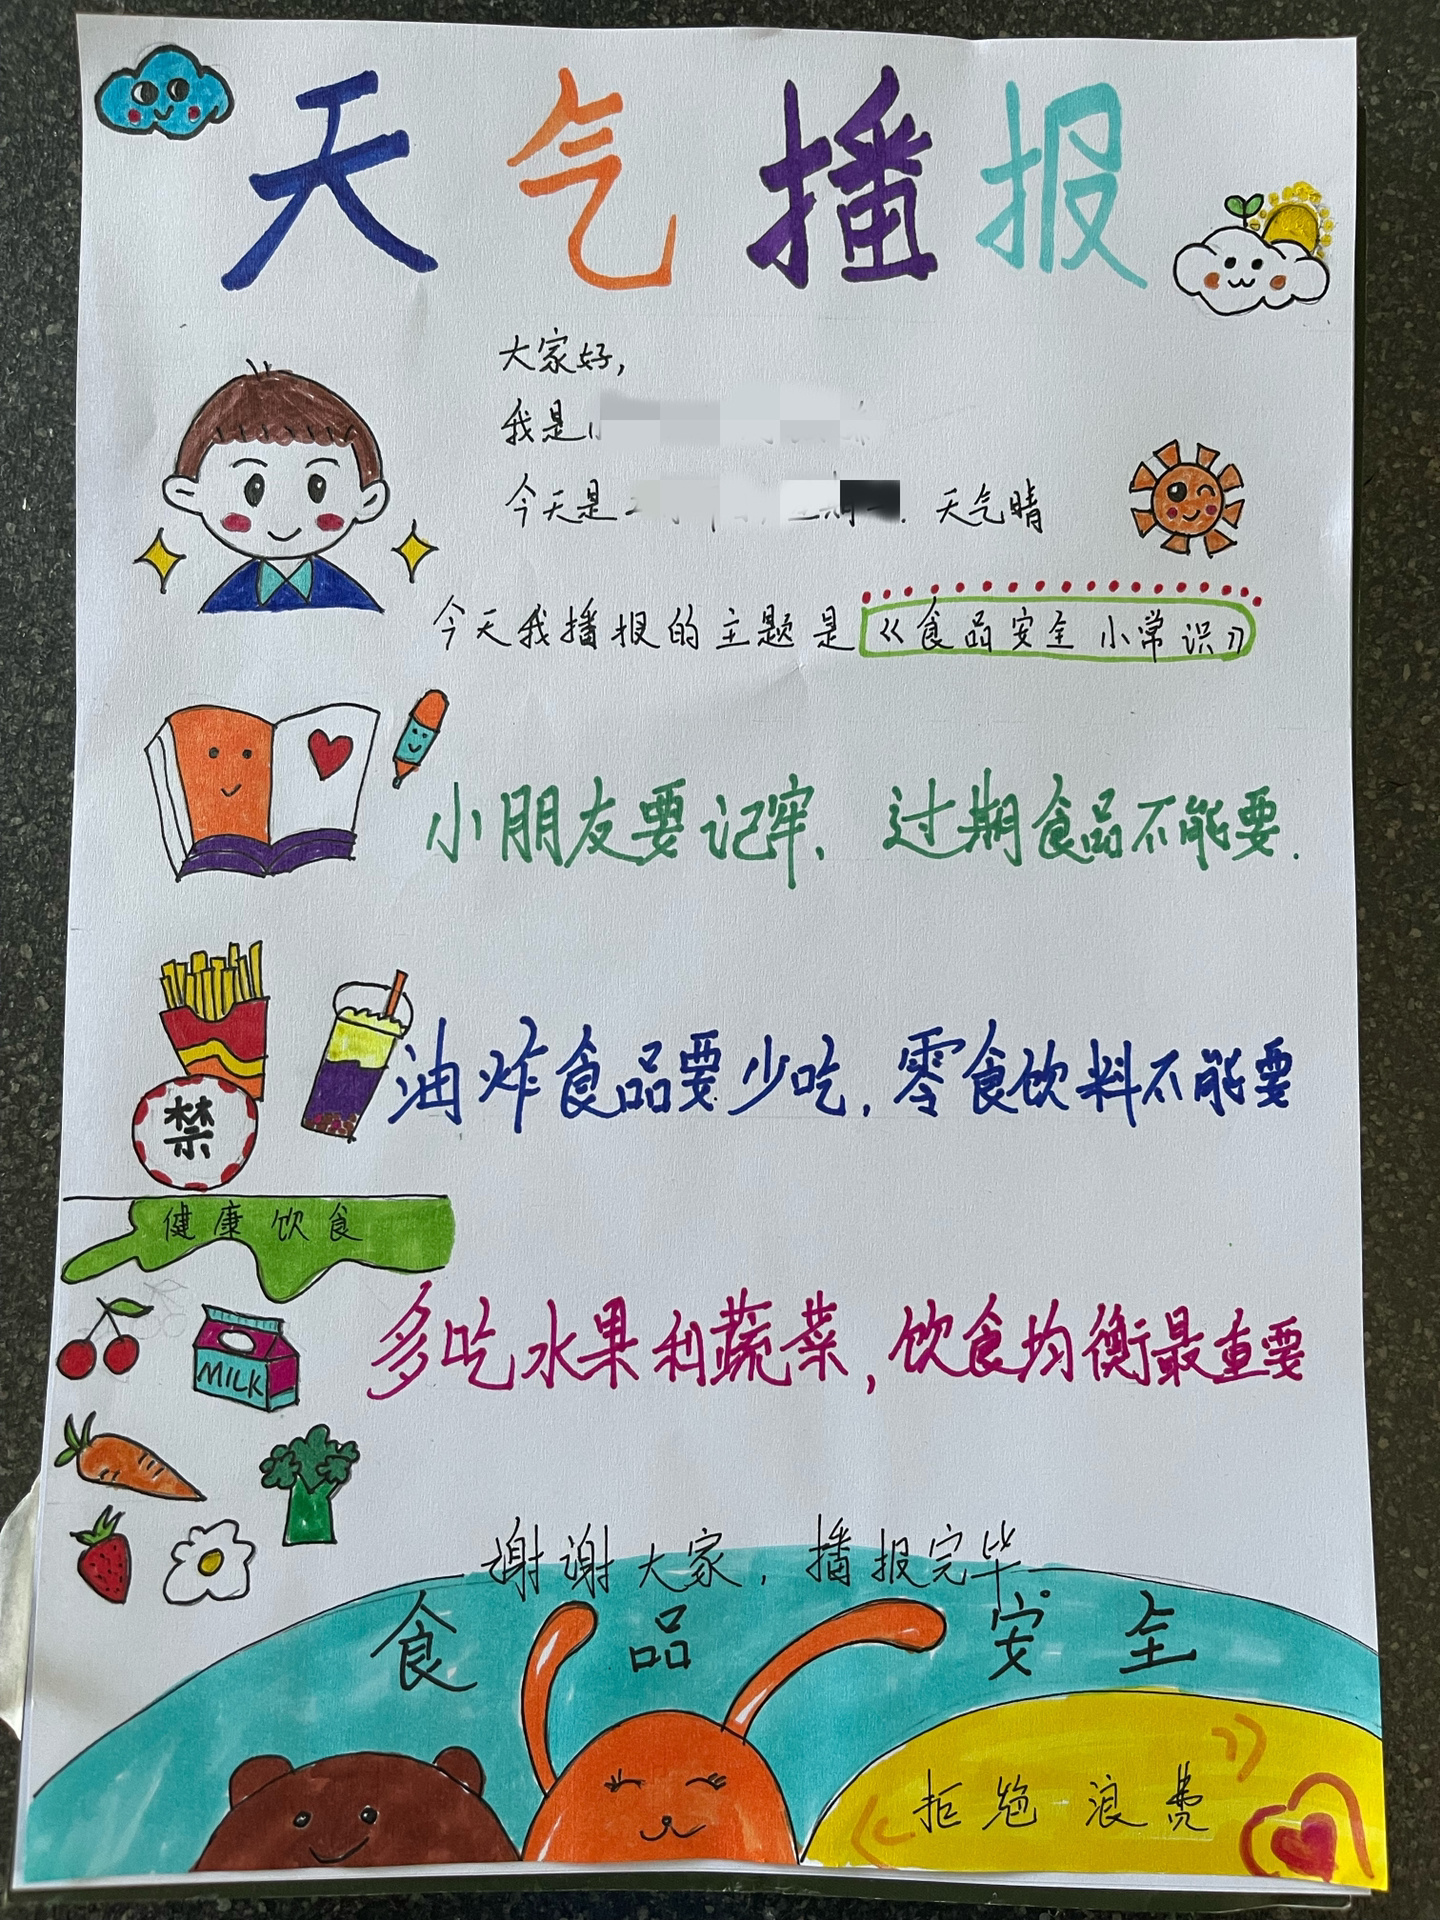 天气播报
大家好,
我是
今天是 天气晴
今天我播报的主题是《食品安全小常识》
小朋友要记牢、过期食品不能要.
油炸食品要少吃,零食饮料不能要
禁
健康饮食
多吃水果和蔬菜,饮食均衡最重要
MILK
谢谢大家,播报完毕
食品安全
拒绝浪费